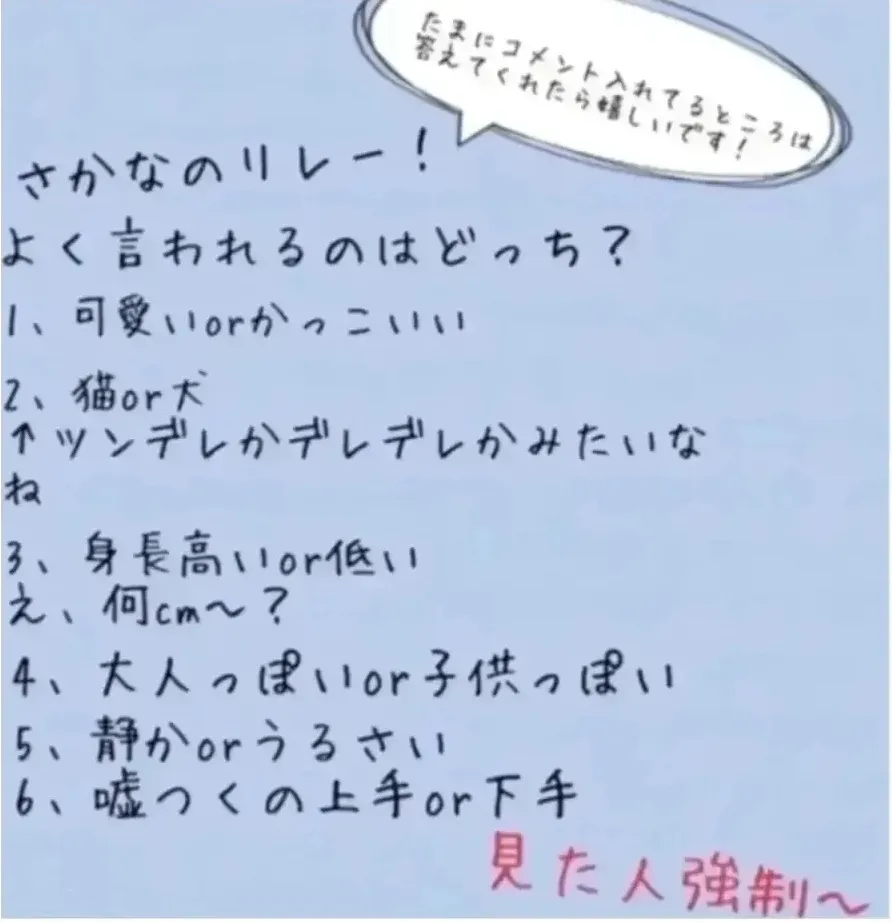 たまにコメント入れてるところは
答えてくれたら嬉しいです!
さかなのリレー!
よく言われるのはどっち?
1、可愛いorかっこいい
2、猫or犬
↑ツンデレかデレデレかみたいな
ね
3、身長高いor低い
え、何cm〜?
4、大人っぽいor子供っぽい
5、静かorうるさい
6、嘘つくの上手or下手
見た人強制〜